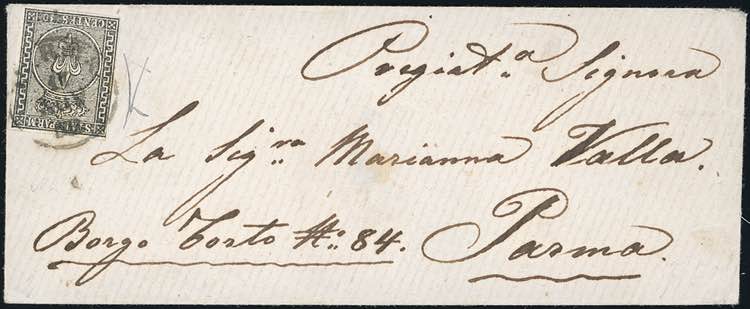 Pregiat.a Signora
La Sig.ra Marianna Valla.
Borgo Torto No. 84. Parma.
CENTES. 10
STATI PARM.